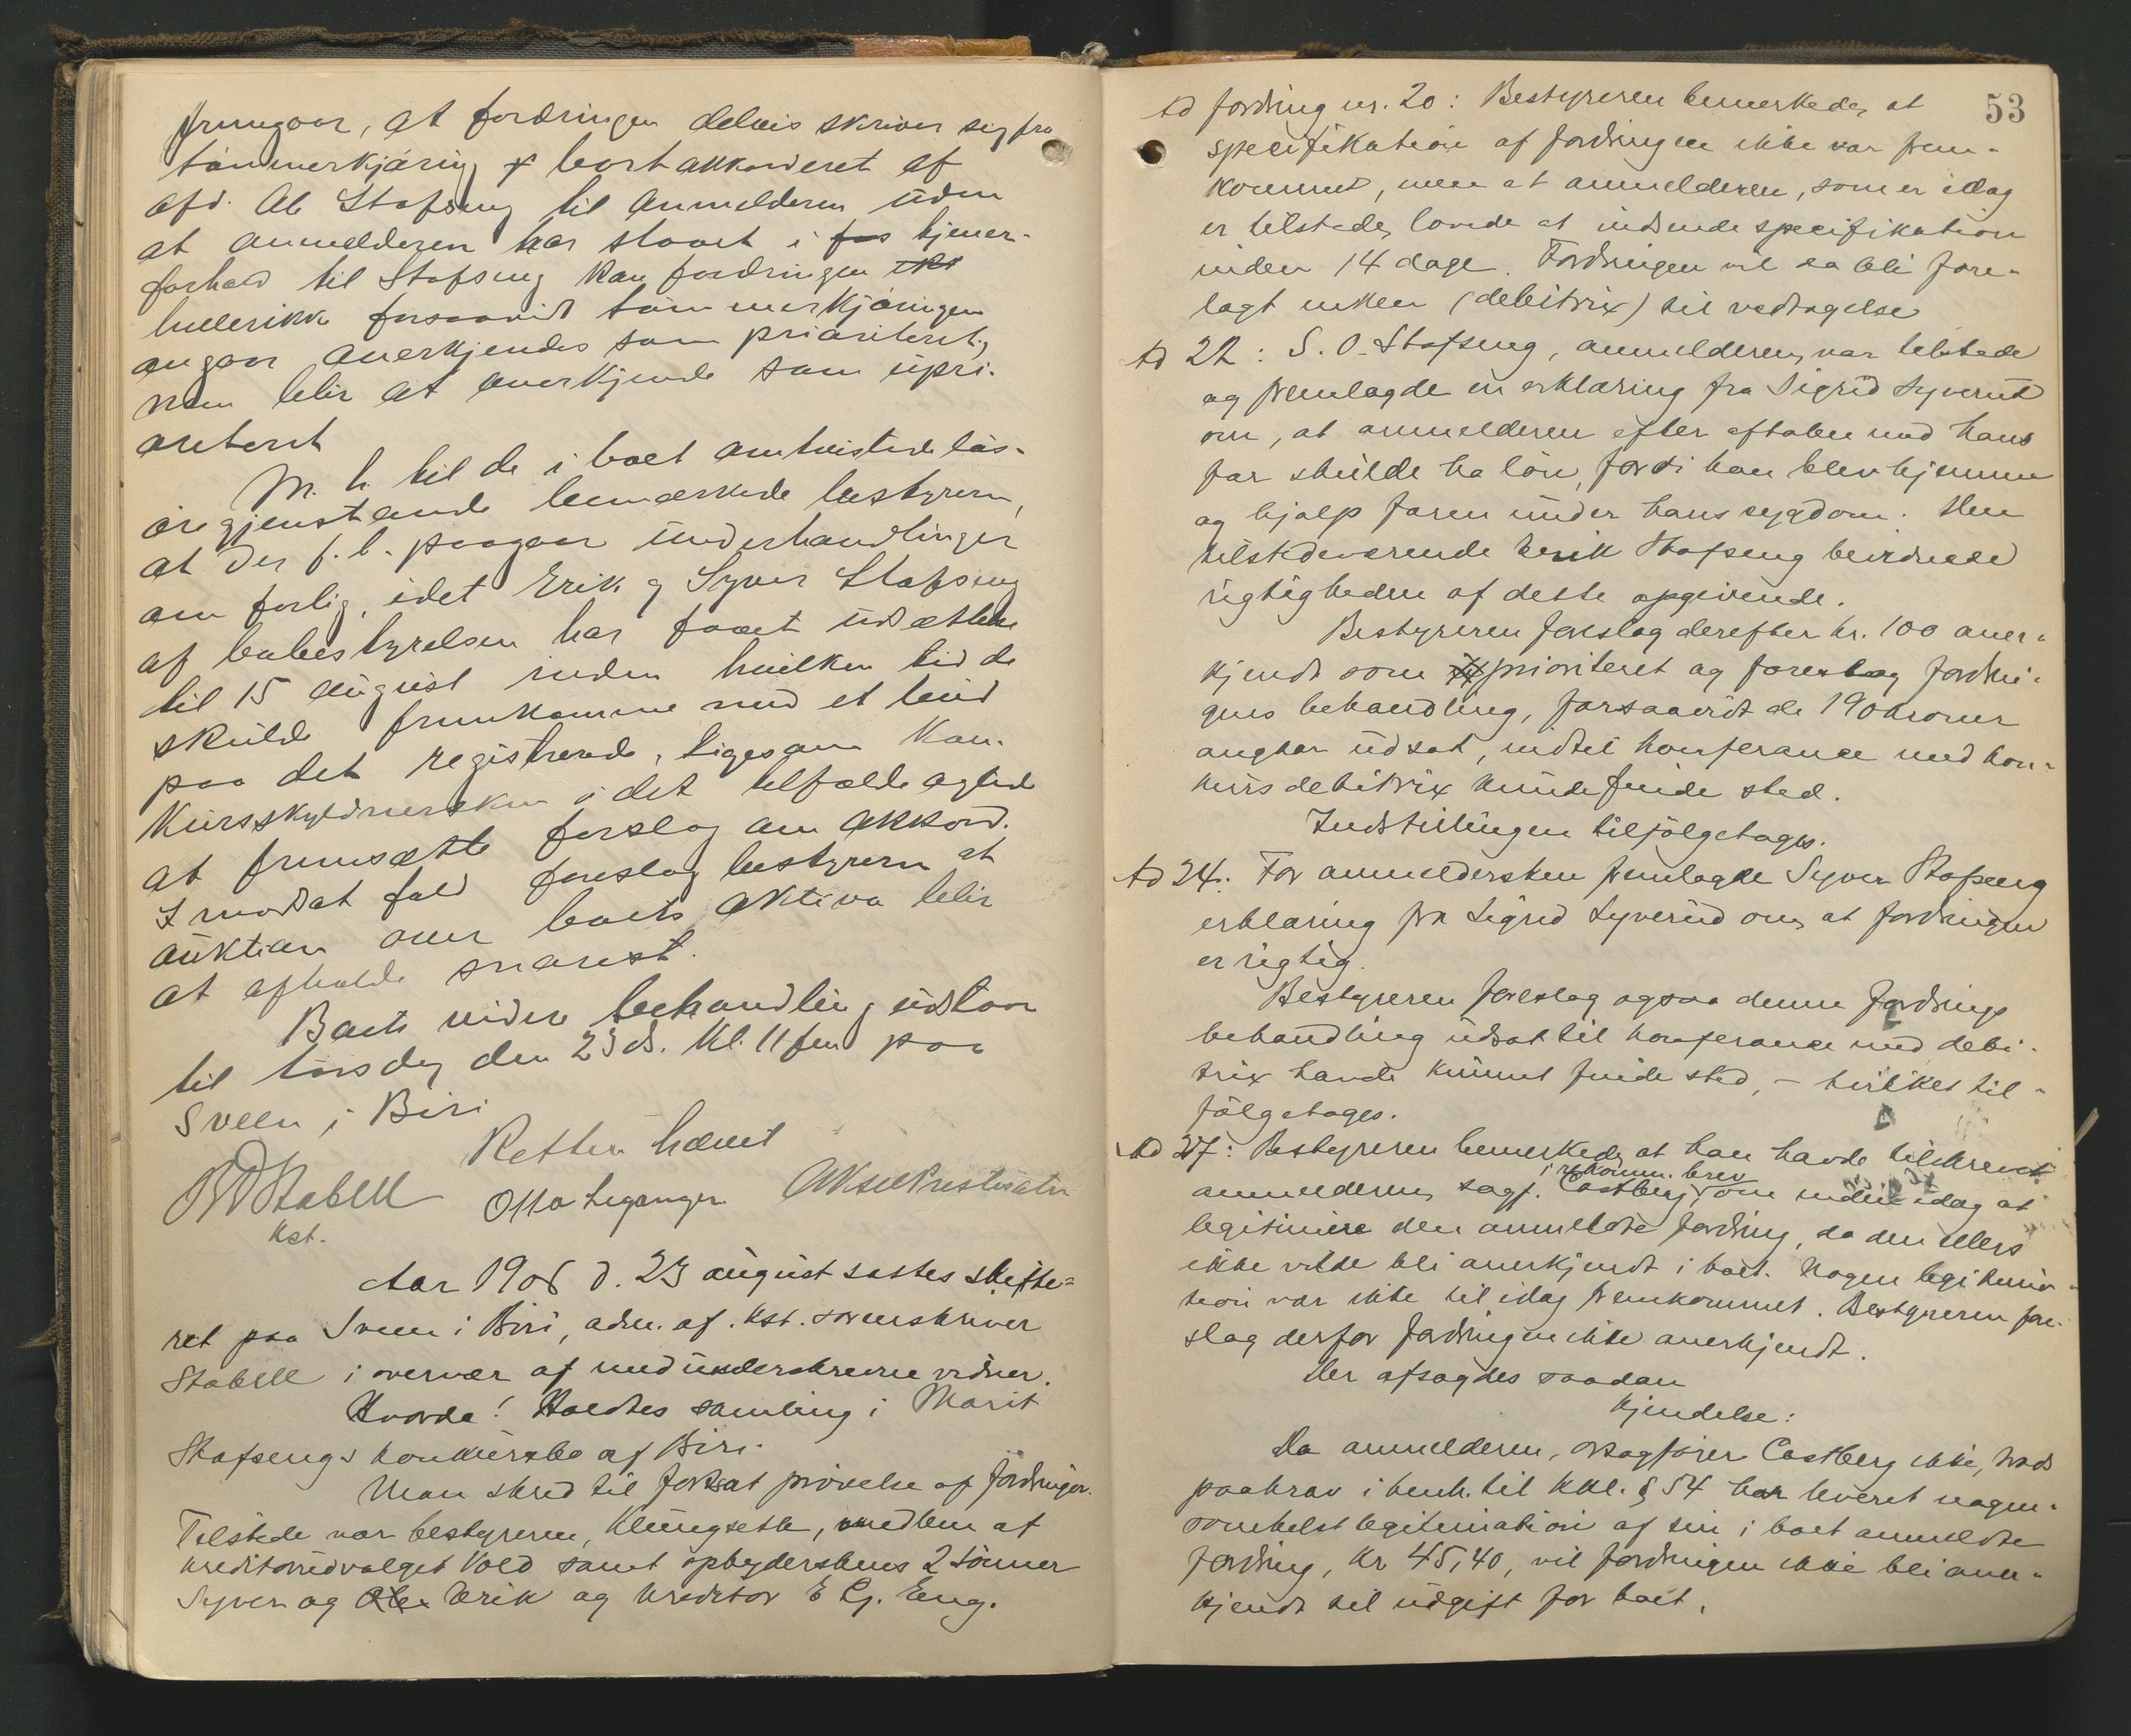 fremgaar, at fordringen delvis skriver sig fra
tømmerkjøring bortakkorderet af
afd. Ole Stafseng til anmelderen uden
at anmelderen har staaet i tjener-
forhold til Stafseng kan fordringen
hellerikke forsaavidt tømmerkjøringen
angaar anerkjendes som prioriteret,
men blir at anerkjende som upri-
oriteret
M. h. til de i boet omtvistede løs-
øregjenstande bemærkede bestyreren,
at der f. t. paagaar underhandlinger
om forlig, idet Erik og Syver Stafseng
af bobestyrelsen har faaet udsættelse
til 15 august inden hvilken tid de
skulde fremkomme med et bud
paa det registrerede, ligesom kon-
kursskyldnersken i det tilfælde agtede
at fremsætte forslag om akkord.
I modsat fald foreslog bestyreren at
auktion over boets aktiva blir
at afholde snarest.
Boets videre behandling udstaar
til torsdag den 23 ds. kl. 11 fm paa
Sveen i Biri
Retten hævet
Stabell Otto Leganger Aksel Prestsæter
kst.
Aar 1906 d. 23 august sattes skifte-
ret paa Sveen i Biri, adm. af. kst. sorenskriver
Stabell i overvær af medunderskrevne vidner.
Hvorda! Holdtes samling i Marit
Stafsengs konkursbo af Biri.
Man skred til fortsat prøvelse af fordringer.
Tilstede var bestyreren, Klungseth, medlem af
kreditorudvalget Vold samt opbyderskens 2 sønner
Syver og Erik og kreditor E Eng.
53
Ad fordring nr. 20: Bestyreren bemerkede, at
specifikation af fordringen ikke var frem-
kommet, men at anmelderen, som er idag
er tilstede, lovede at indsende specifikation
inden 14 dage. Fordringen vil da bli fore-
lagt enken (debitrix) til vedtagelse
Ad 22: S. O. Stafseng, anmelderen, var tilstede
og fremlagde en erklæring fra Sigrid Syverud
om, at anmelderen efter aftale med hans
far skulde ha løn, fordi han blev hjemme
og hjalp faren under hans sygdom. Den
tilstedeværende Erik Stafseng bevidnede
rigtigheden af dette opgivende.
Bestyreren foreslog derefter kr. 100 aner-
kjendt som prioriteret og foreslog fordrin-
gens behandling, forsaavidt de 190 kroner
angaar udsat, indtil konferance med kon-
kursdebitrix kunde finde sted.
Indstillingen tilfølgetages.
Ad 24: For anmeldersken fremlagde Syver Stafseng
erklæring fra Sigrid Syverud om, at fordringen
er rigtig.
Bestyreren foreslog ogsaa denne fordrings
behandling udsat til konferance med debi-
trix havde kunnet finde sted, – hvilket til-
følgetages.
Ad 27: Bestyreren bemerkede, at han havde tilskrevet
i rekomm. brev
anmelderen, sagf. Castberg, om inden idag at
legitimere den anmeldte fordring, da den ellers
ikke vilde bli anerkjendt i boet. Nogen legitima-
tion var ikke til idag fremkommet. Bestyreren fore-
slog derfor fordringen ikke anerkjendt.
Der afsagdes saadan
kjendelse:
Da anmelderen, orsagfører Castberg ikke, trods
paakrav i henh. til kkl. § 54 har leveret nogen-
somhelst legitimation af sin i boet anmeldte
fordring, kr 45,40, vil fordringen ikke bli aner-
kjendt til udgift for boet.